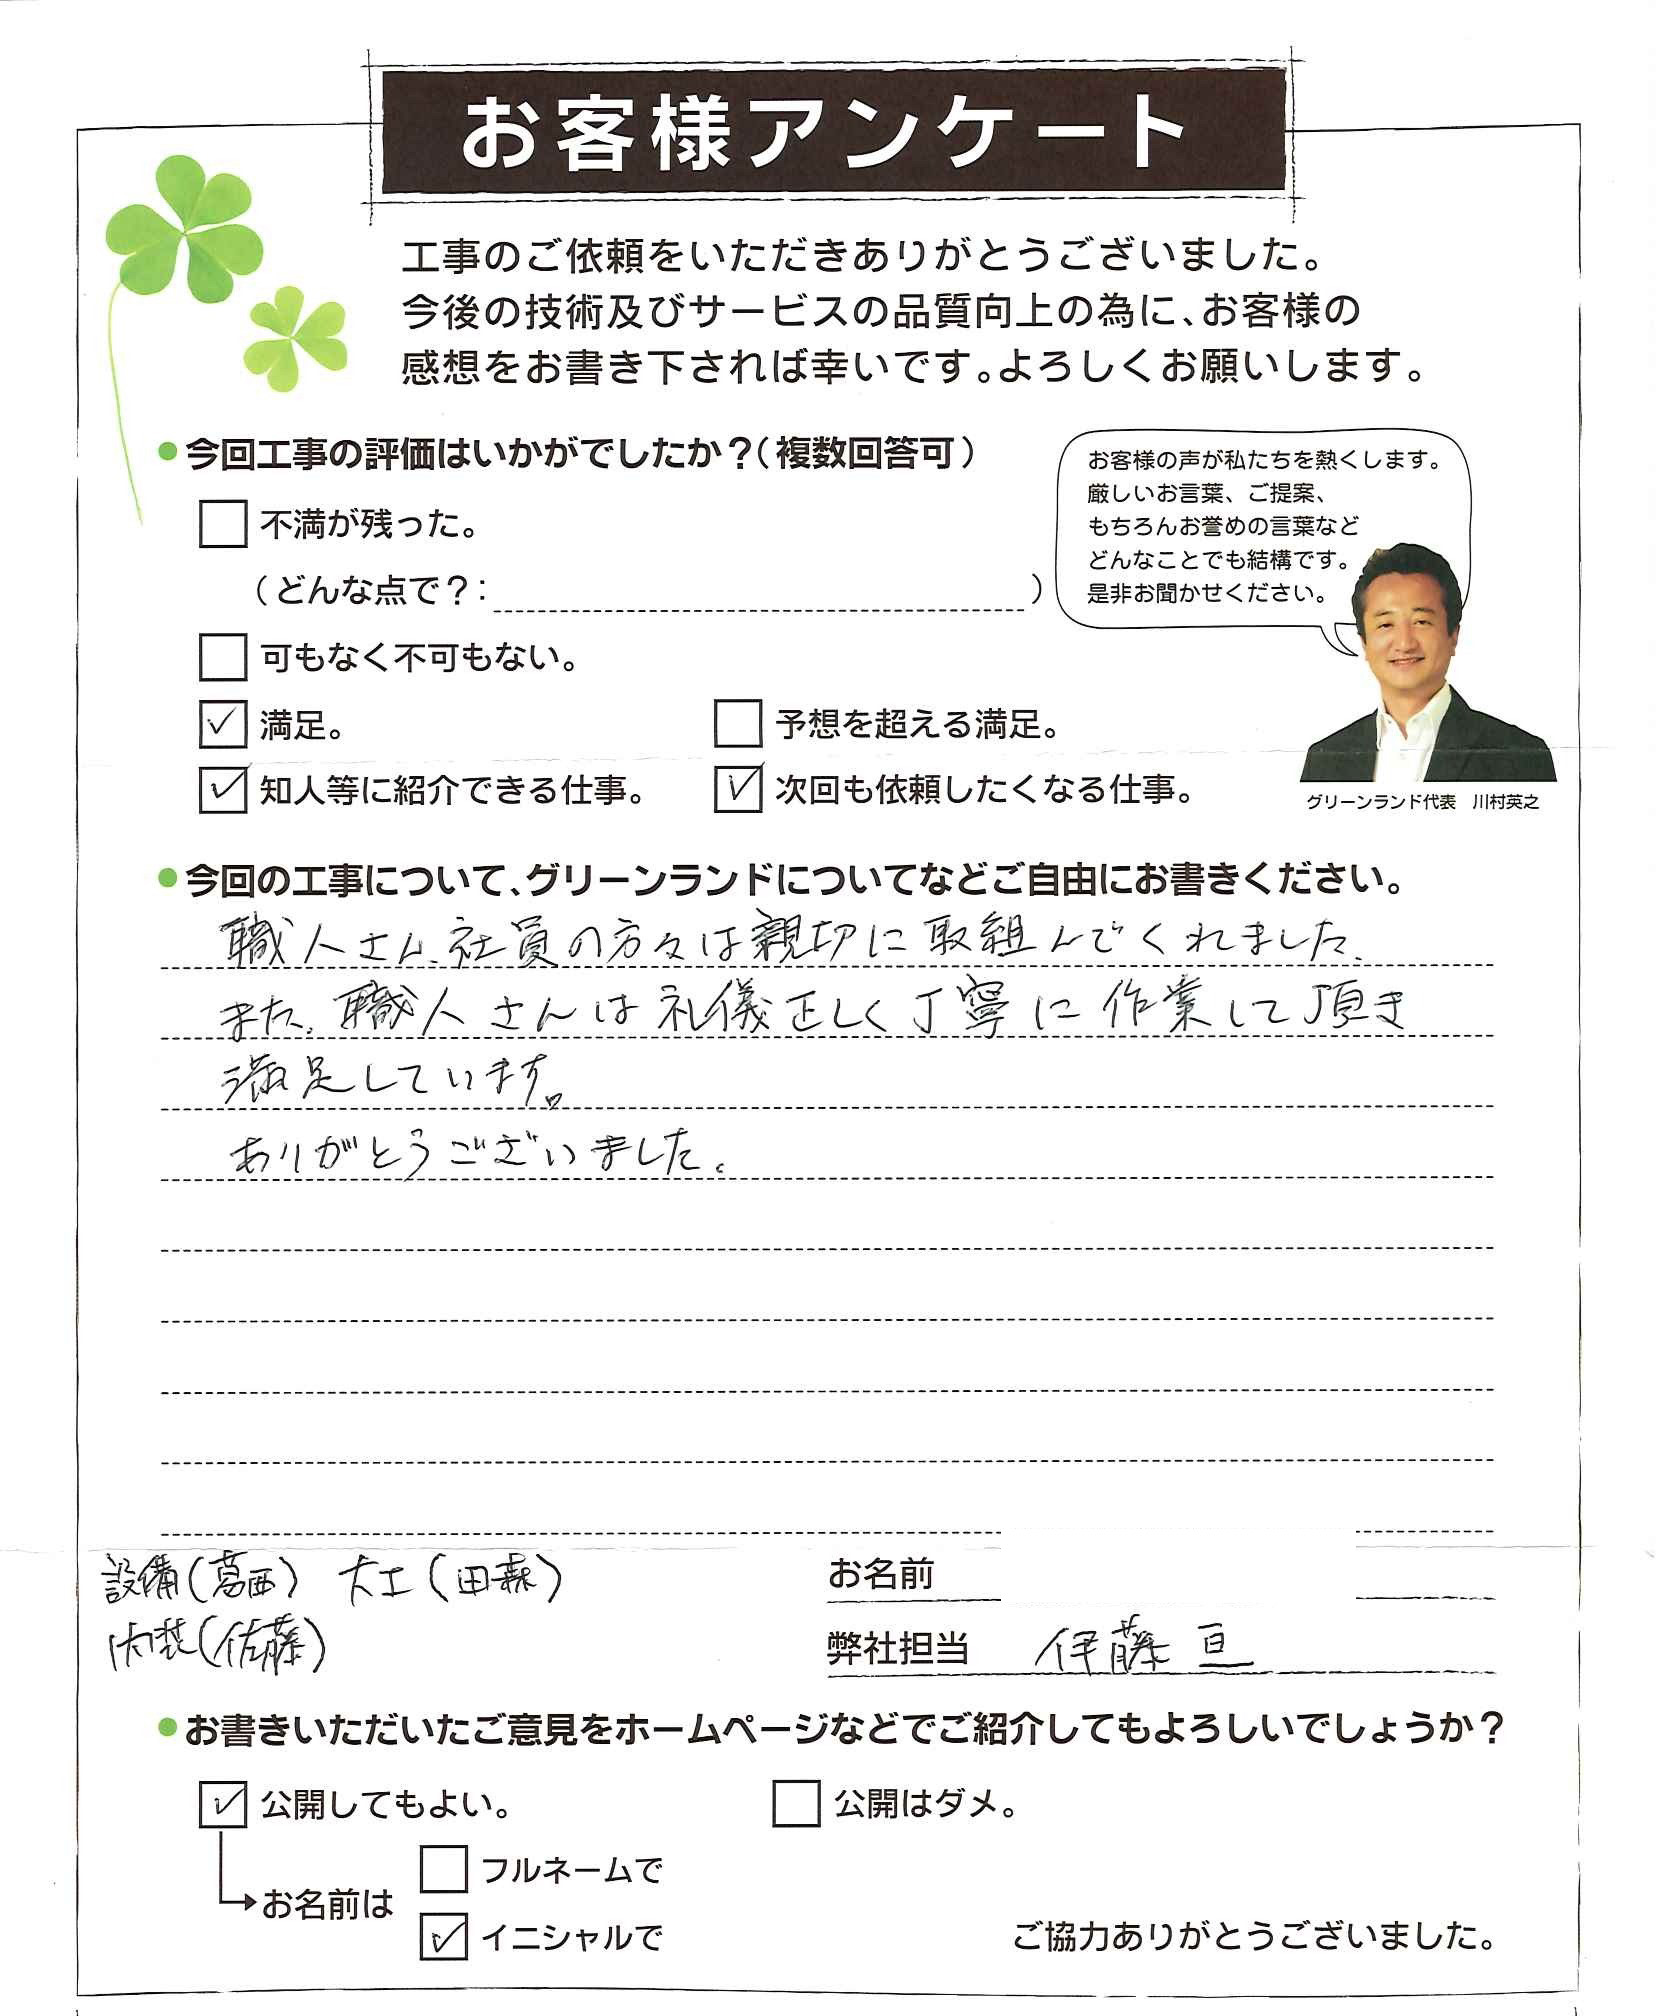 お客様アンケート
工事のご依頼をいただきありがとうございました。
今後の技術及びサービスの品質向上の為に、お客様の
感想をお書き下されば幸いです。よろしくお願いします。
●今回工事の評価はいかがでしたか？（複数回答可）
お客様の声が私たちを熱くします。
厳しいお言葉、ご提案、
もちろんお誉めの言葉など
どんなことでも結構です。
是非お聞かせください。
不満が残った。
（どんな点で？：　）
可もなく不可もない。
✓ 満足。　予想を超える満足。
✓ 知人等に紹介できる仕事。　✓ 次回も依頼したくなる仕事。
グリーンランド代表　川村英之
●今回の工事について、グリーンランドについてなどご自由にお書きください。
職人さん、社員の方々は親切に取組んでくれました。
また、職人さんは礼儀正しく丁寧に作業して頂き
満足しています。
ありがとうございました。
設備(葛西) 大工(田森)
内装(佐藤)
お名前
弊社担当　伊藤 亘
●お書きいただいたご意見をホームページなどでご紹介してもよろしいでしょうか？
✓ 公開してもよい。　公開はダメ。
フルネームで
お名前は
✓ イニシャルで
ご協力ありがとうございました。